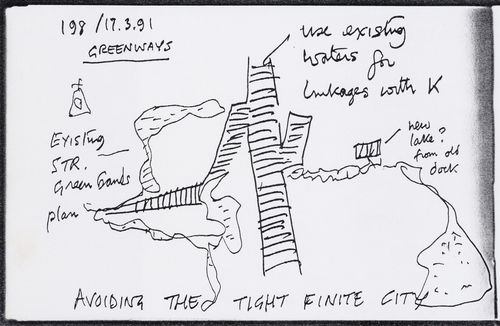 198 / 17.3.91
GREENWAYS
use existing
waters for
linkages with K
Existing
STR.
Green bands
plan
new
lake?
from old
dock
AVOIDING THE TIGHT FINITE CITY